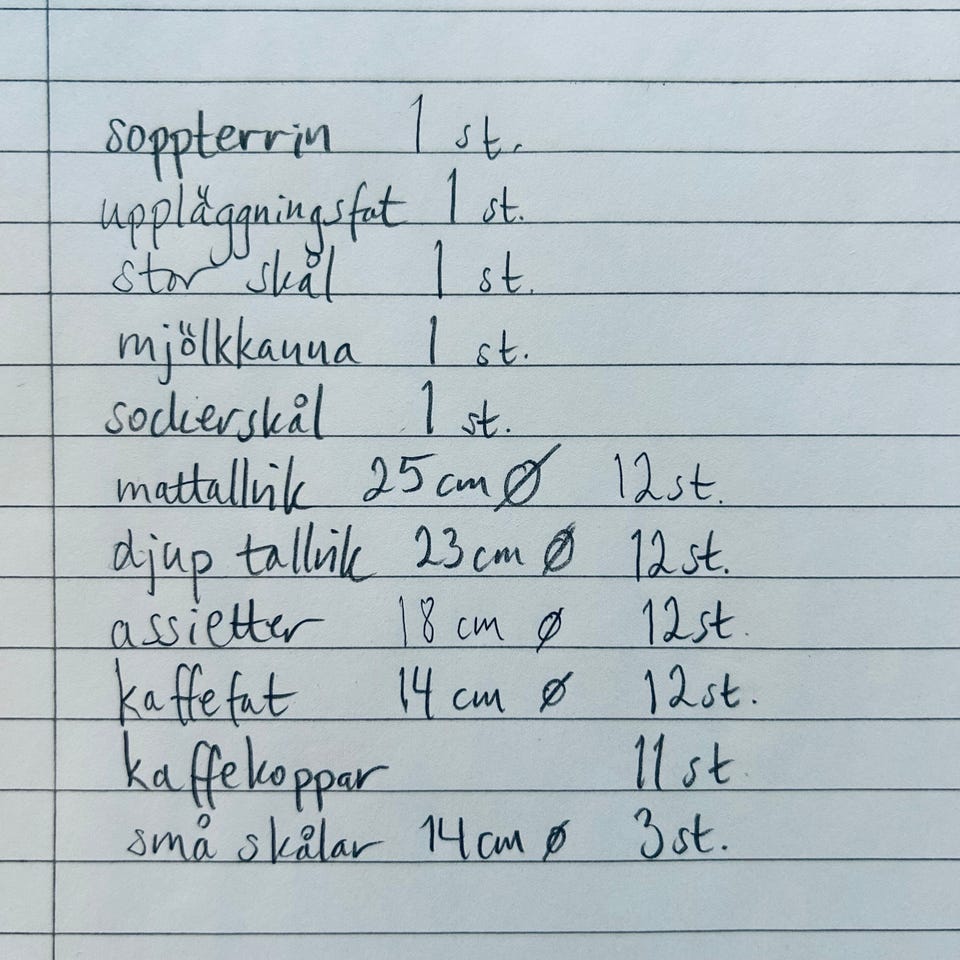 soppterrin 1 st.
uppläggningsfat 1 st.
stor skål 1 st.
mjölkkanna 1 st.
sockerskål 1 st.
mattallrik 25 cm Ø 12 st.
djup tallrik 23 cm Ø 12 st.
assietter 18 cm Ø 12 st.
kaffefat 14 cm Ø 12 st.
kaffekoppar 11 st.
små skålar 14 cm Ø 3 st.